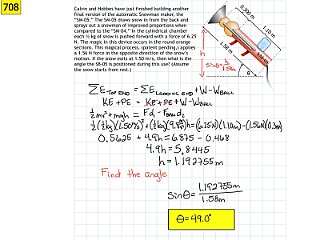 708
Calvin and Hobbes have just finished building another
final version of the automatic Snowman maker, the
"SM-05." The SM-05 draws snow in from the back and
spits out a snowman of improved proportions when
compared to the "SM-04." In the cylindrical chamber
each ½ kg of snow is pushed forward with a force of 6.25
N. The magic in this device occurs in the round orange
sections. This magical process, (patent pending,) applies
a 1.56 N force in the opposite direction of the snow's
motion. If the snow exits at 1.50 m/s, then what is the
angle the SM-05 is positioned during this use? (Assume
the snow starts from rest.)
0.300 m
1.10 m
1.58 m
h
θ
sinθ = h/1.58m
ΣE TOP END = ΣE LOWER END + W - W
KE + PE = KE + PE + W - W
½mv² + mgh = Fd - Fd
½(½kg)(1.50m/s)² + (½kg)(9.8m/s²)h = (6.25N)(1.10m) - (1.56N)(0.3m)
0.5625 + 4.9h = 6.875 - 0.468
4.9h = 5.8445
h = 1.192755m
Find the angle
sinθ = 1.192755m/1.58m
θ = 49.0°